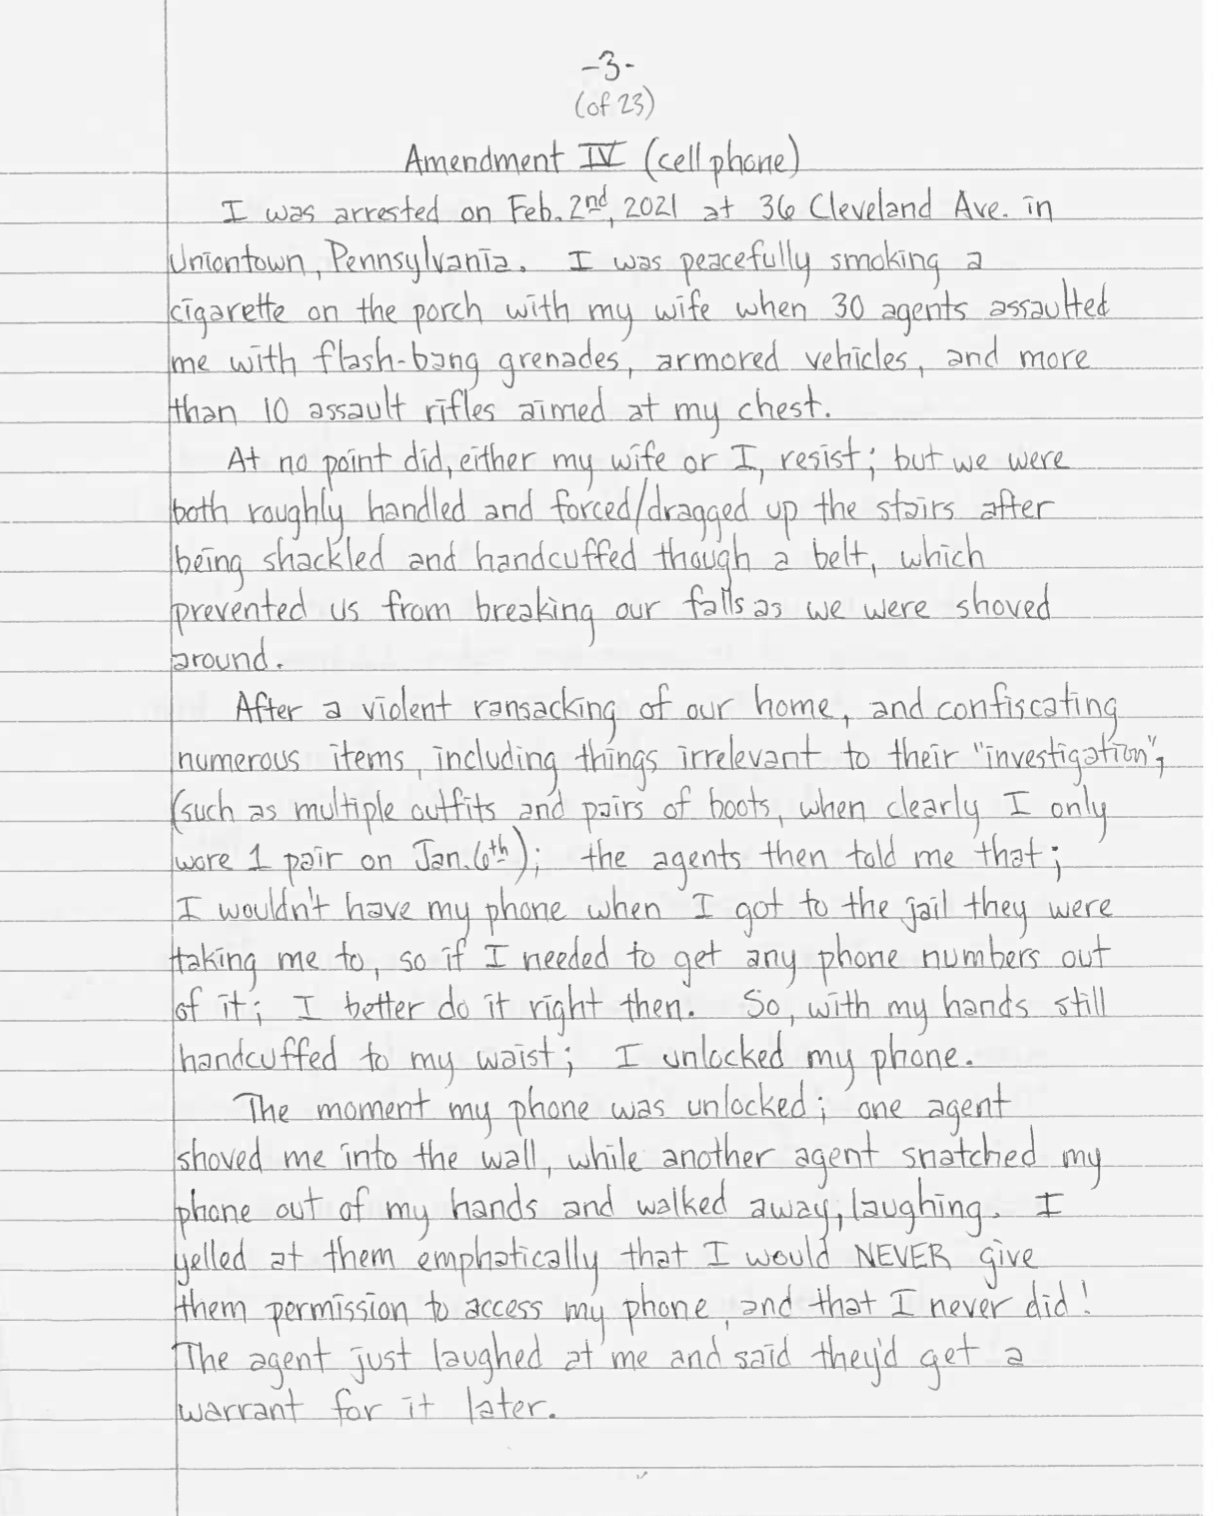 -3-
(of 23)
Amendment IV (cell phone)
I was arrested on Feb. 2nd, 2021 at 36 Cleveland Ave. in
Uniontown, Pennsylvania. I was peacefully smoking a
cigarette on the porch with my wife when 30 agents assaulted
me with flash-bang grenades, armored vehicles, and more
than 10 assault rifles aimed at my chest.
At no point did, either my wife or I, resist; but we were
both roughly handled and forced/dragged up the stairs after
being shackled and handcuffed though a belt, which
prevented us from breaking our falls as we were shoved
around.
After a violent ransacking of our home, and confiscating
numerous items, including things irrelevant to their "investigation",
(such as multiple outfits and pairs of boots, when clearly I only
wore 1 pair on Jan. 6th); the agents then told me that;
I wouldn't have my phone when I got to the jail they were
taking me to, so if I needed to get any phone numbers out
of it; I better do it right then. So, with my hands still
handcuffed to my waist; I unlocked my phone.
The moment my phone was unlocked; one agent
shoved me into the wall, while another agent snatched my
phone out of my hands and walked away, laughing. I
yelled at them emphatically that I would NEVER give
them permission to access my phone, and that I never did!
The agent just laughed at me and said they'd get a
warrant for it later.